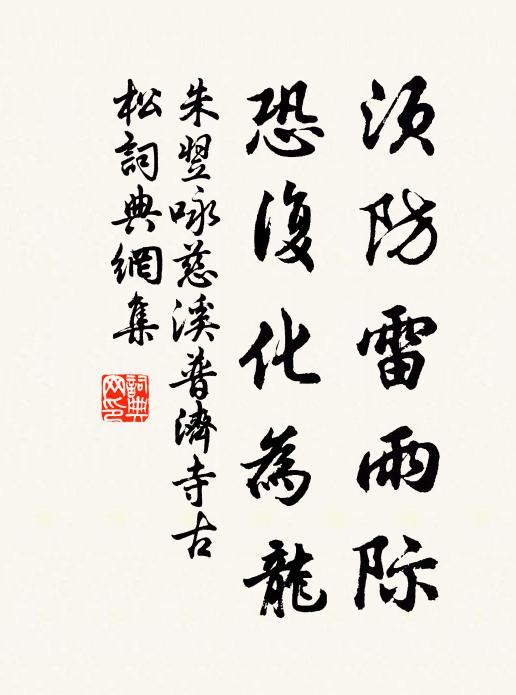 須防雷雨际
恐復化為龍
朱翌咏慈溪普濟寺古
松詞典網集
詞典网印